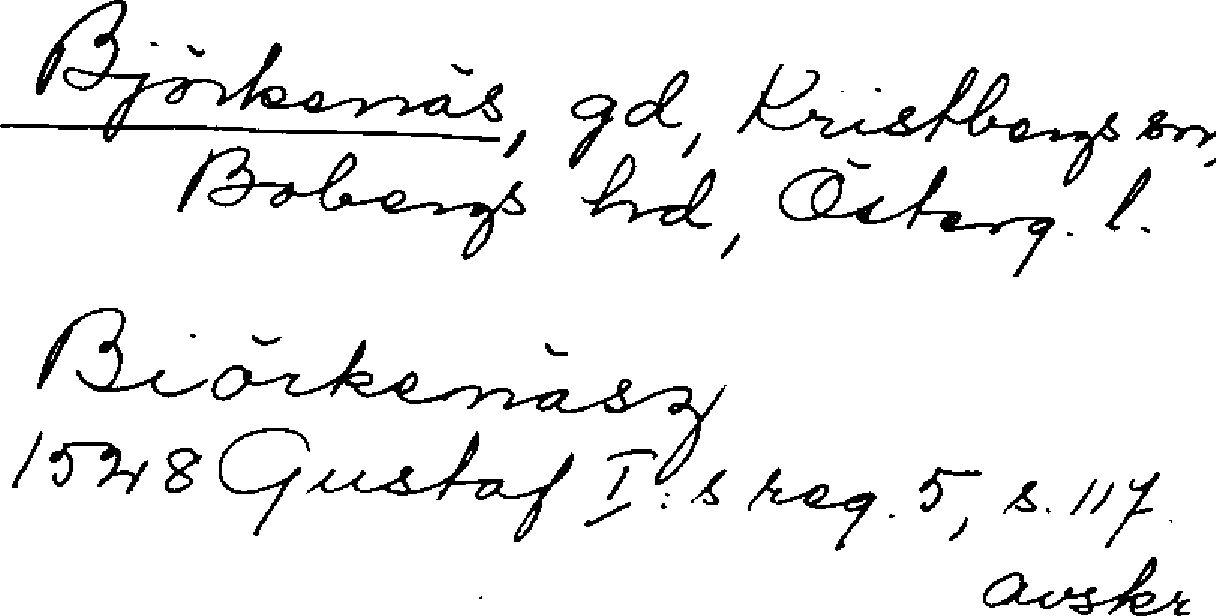 Björkenäs, gd, Kristbergs sn,
Bobergs hrd, Österg. l.
Biörkenäsz
1528 Gustaf I:s reg. 5, s. 117.
avskr